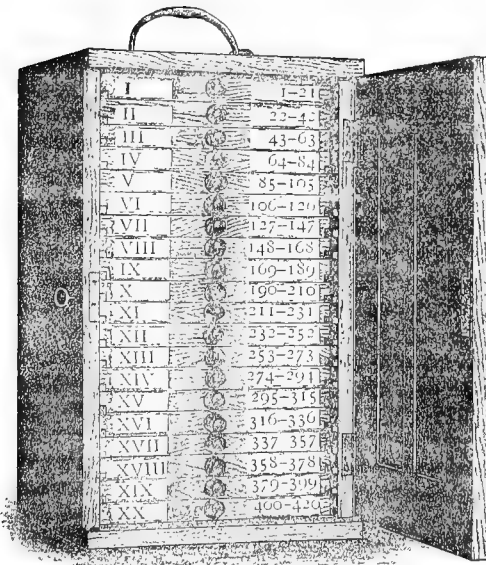 I 1-21
II 22-42
III 43-63
IV 64-84
V 85-105
VI 106-126
VII 127-147
VIII 148-168
IX 169-189
X 190-210
XI 211-231
XII 232-252
XIII 253-273
XIV 274-294
XV 295-315
XVI 316-336
XVII 337-357
XVIII 358-378
XIX 379-399
XX 400-420